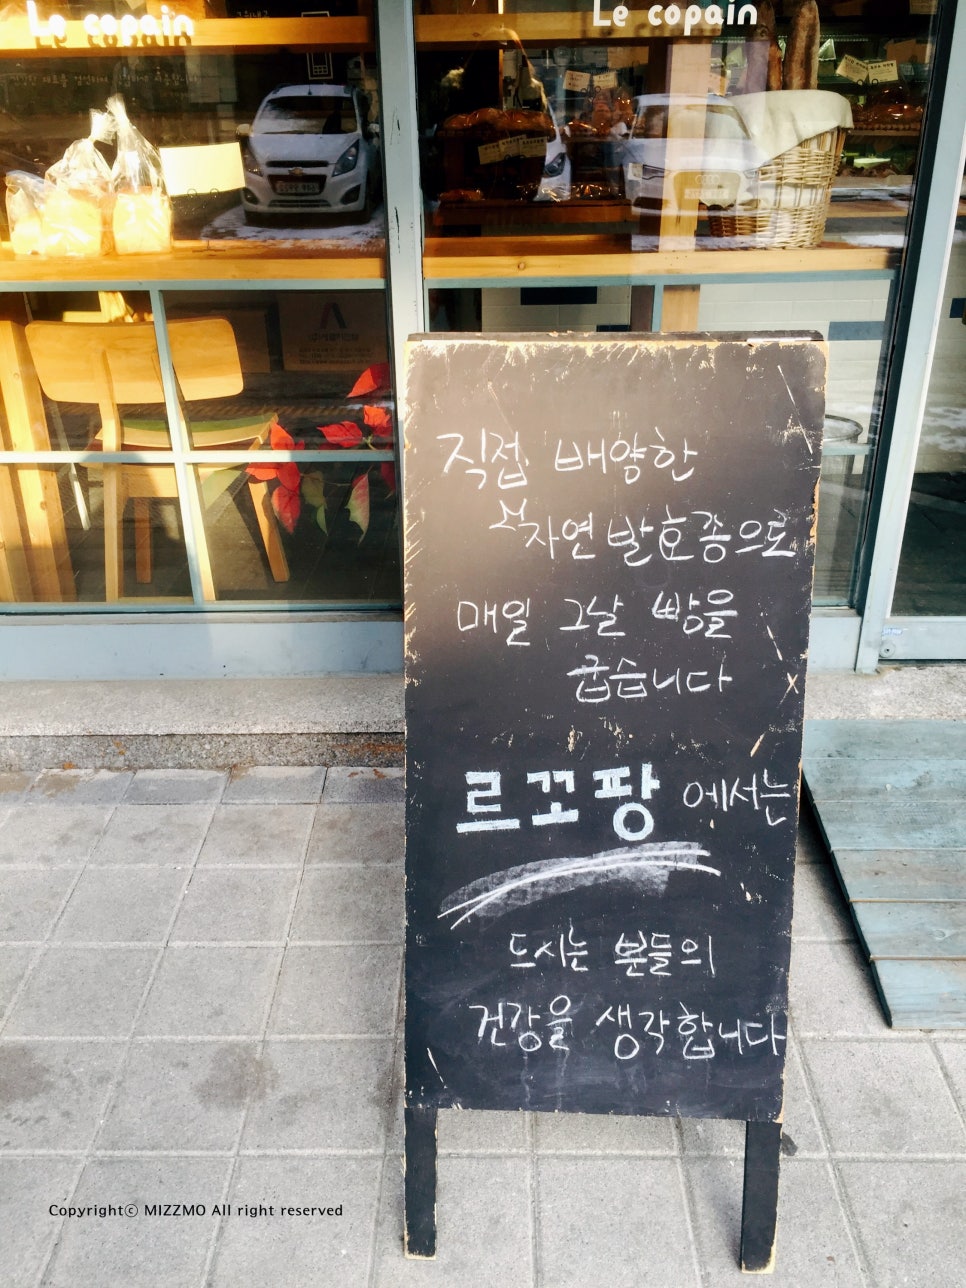 Le copain
Le copain
직접 배양한
천연발효종으로
매일 그날 빵을
굽습니다
르꼬팡에서는
드시는 분들의
건강을 생각합니다
Copyrightⓒ MIZZMO All right reserved